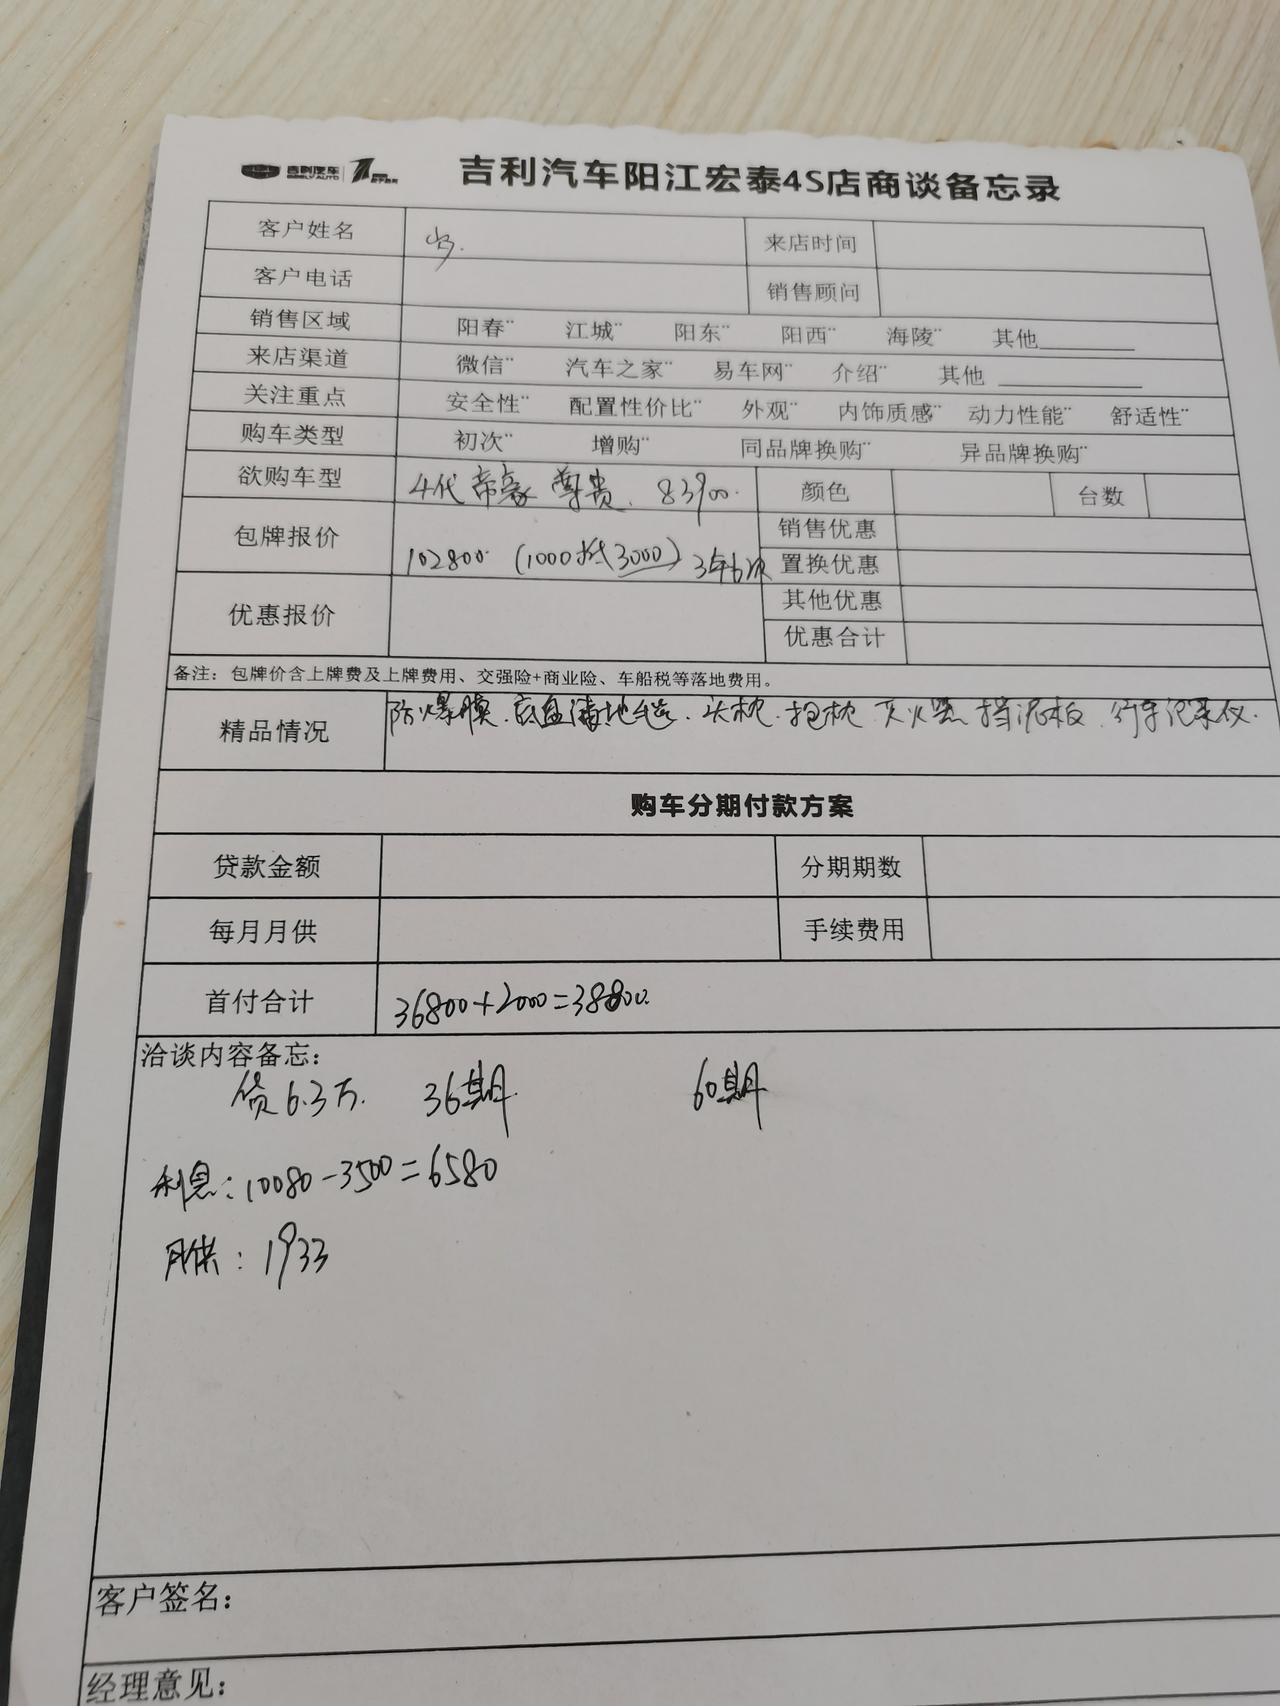 吉利汽车 GEELY AUTO
吉利汽车阳江宏泰4S店商谈备忘录
客户姓名 来店时间
客户电话 销售顾问
销售区域 阳春¨ 江城¨ 阳东¨ 阳西¨ 海陵¨ 其他________
来店渠道 微信¨ 汽车之家¨ 易车网¨ 介绍¨ 其他 ____________
关注重点 安全性¨ 配置性价比¨ 外观¨ 内饰质感¨ 动力性能¨ 舒适性¨
购车类型 初次¨ 增购¨ 同品牌换购¨ 异品牌换购¨
欲购车型 4代帝豪 尊贵. 83900. 颜色 台数
包牌报价 102800. (1000抵3000) 3年6次 销售优惠
置换优惠
优惠报价 其他优惠
优惠合计
备注：包牌价含上牌费及上牌费用、交强险+商业险、车船税等落地费用。
精品情况 防爆膜. 底盘 地毯. 头枕. 抱枕 灭火器 挡泥板. 行车记录仪.
购车分期付款方案
贷款金额 分期期数
每月月供 手续费用
首付合计 36800+2000=38800.
洽谈内容备忘：
贷6.3万. 36期. 60期
利息：10080-3500=6580
月供：1933
客户签名：
经理意见：